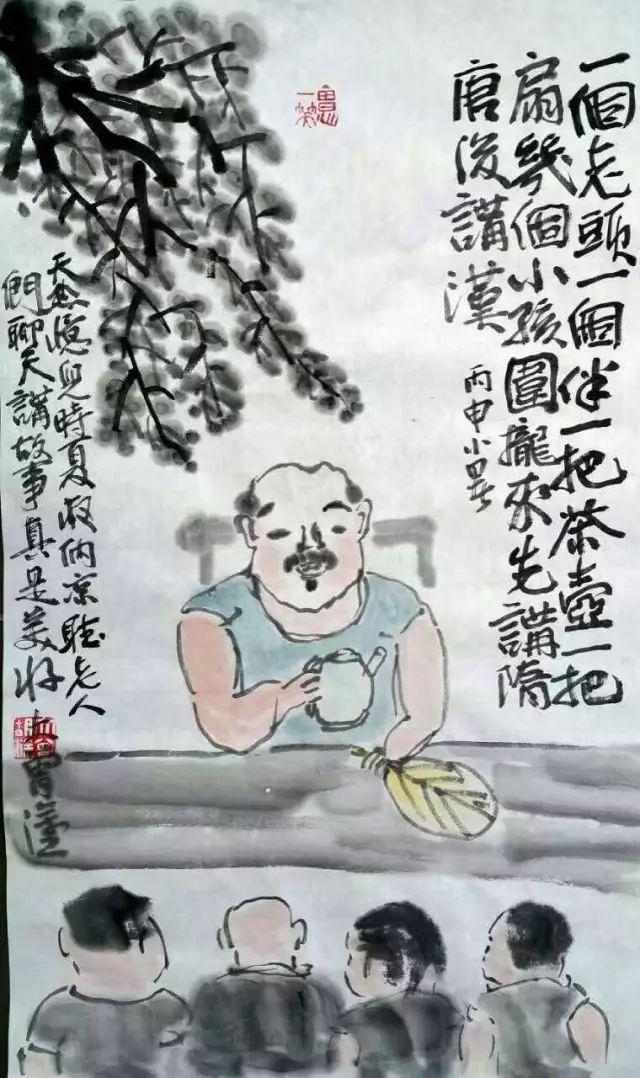 一個老頭一個伴一把茶壺一把
扇幾個小孩圍攏來先講隋
唐後講漢
丙申小暑
天热憶兒時夏夜納凉聽老人
們聊天講故事真是美好